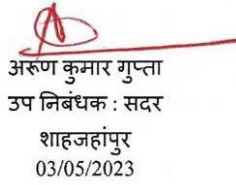 अरूण कुमार गुप्ता
उप निबंधक : सदर
शाहजहांपुर
03/05/2023